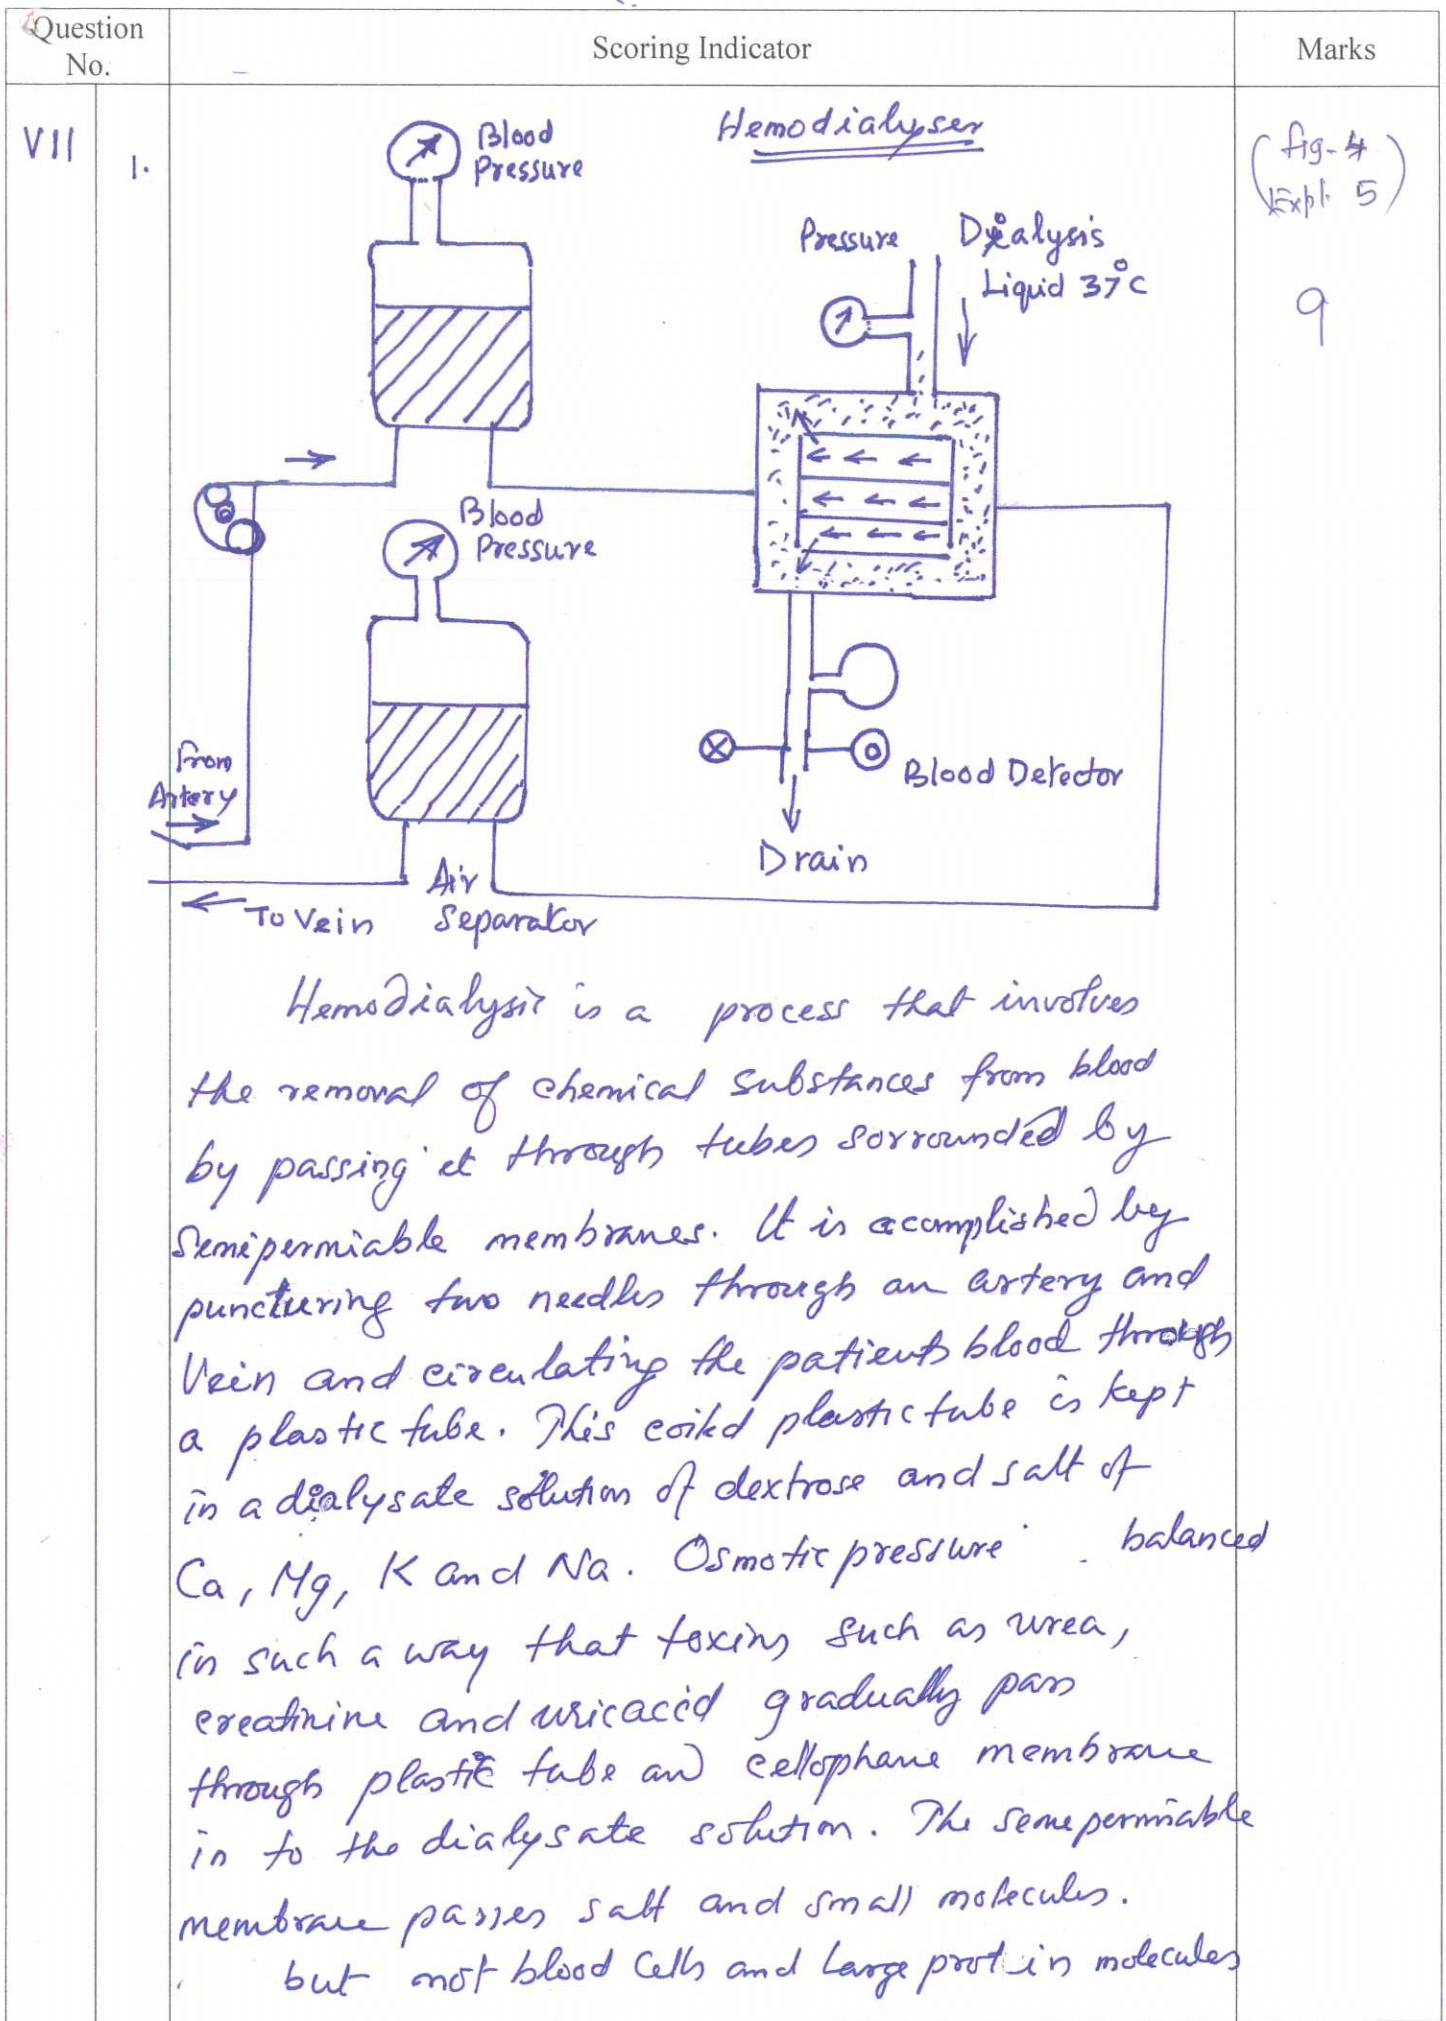 Question No.
Scoring Indicator
Marks
VII
1.
Hemodialyser
(fig-4
Expl. 5)
9
Blood
Pressure
Pressure
Dialysis
Liquid 37°C
Blood
Pressure
From
Artery
Blood Detector
Drain
Air
Separator
To Vein
Hemodialysis is a process that involves
the removal of chemical substances from blood
by passing it through tubes sorrounded by
Semipermiable membranes. It is accomplished by
puncturing two needles through an artery and
Vein and circulating the patients blood through
a plastic tube. This coiled plastic tube is kept
in a dialysate solution of dextrose and salt of
Ca, Mg, K and Na. Osmotic pressure balanced
in such a way that toxins such as urea,
creatinine and uricacid gradually pass
through plastic tube and cellophane membrane
in to the dialysate solution. The semepermiable
membrane passes salt and small molecules.
but not blood cells and large protein molecules